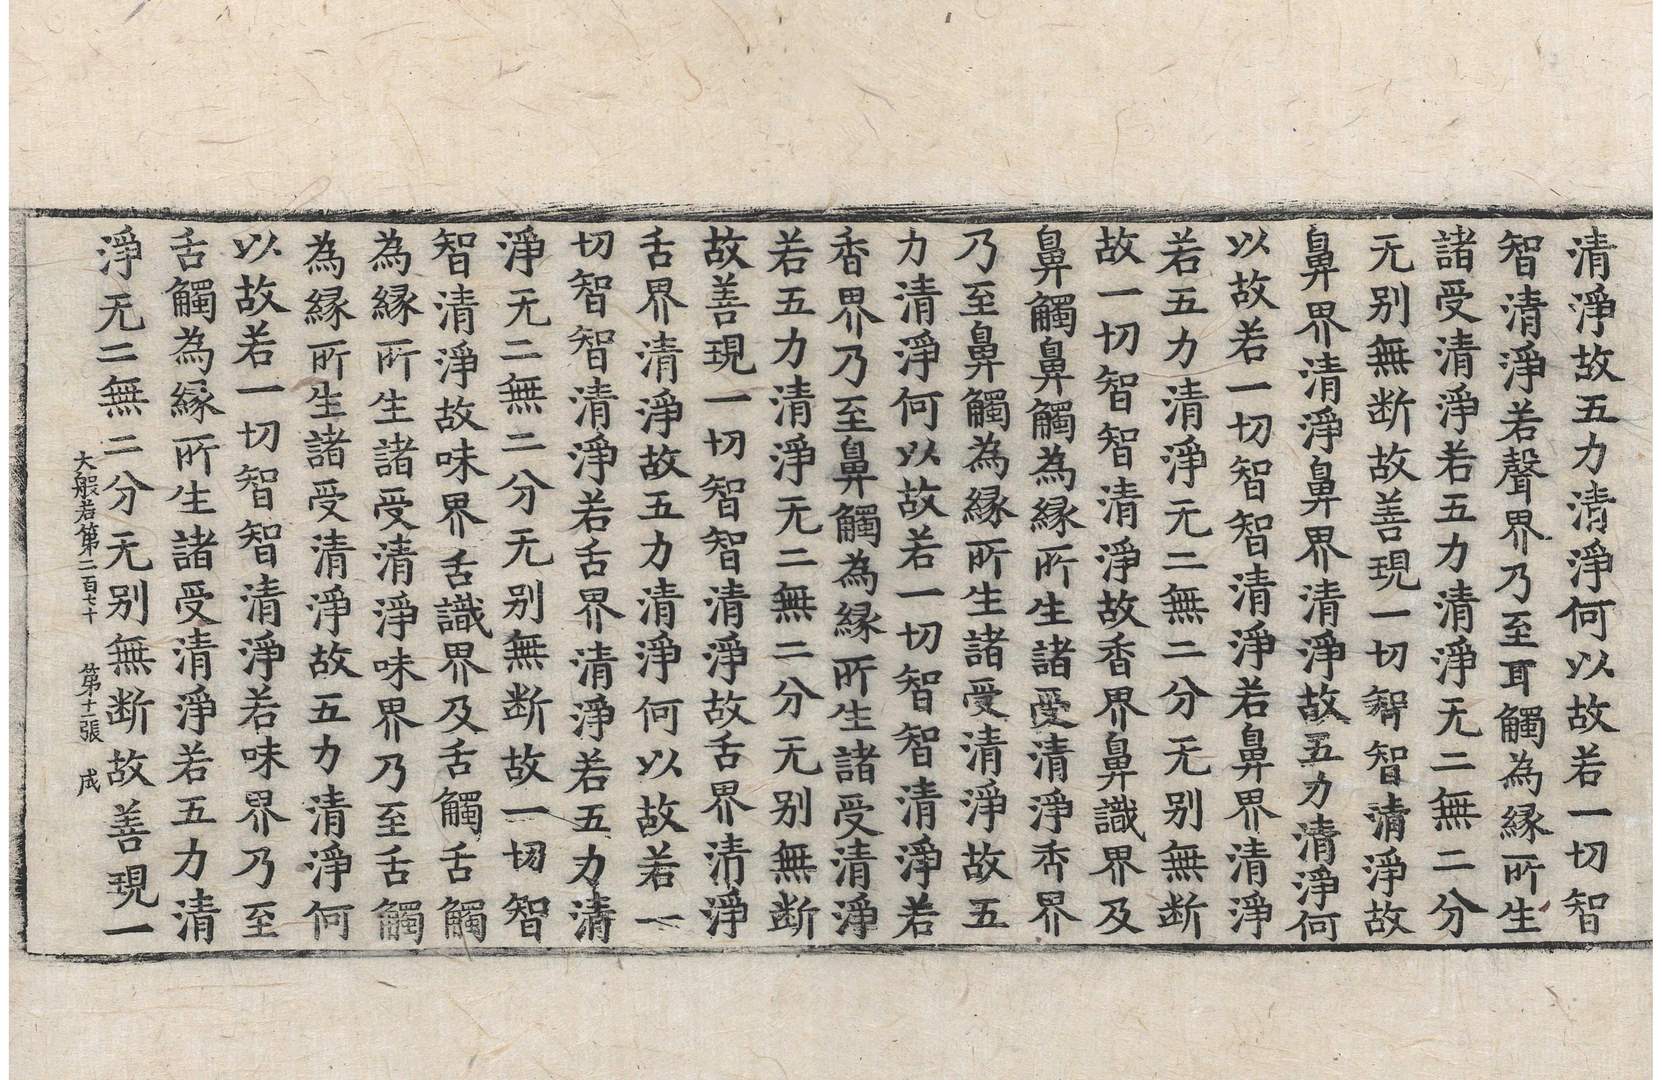 清淨故五力清淨何以故若一切智
智清淨若聲界乃至耳觸為緣所生
諸受清淨若五力清淨无二無二分
无别無断故善現一切智智清淨故
鼻界清淨鼻界清淨故五力清淨何
以故若一切智智清淨若鼻界清淨
若五力清淨无二無二分无别無断
故一切智智清淨故香界鼻識界及
鼻觸鼻觸為緣所生諸受清淨香界
乃至鼻觸為緣所生諸受清淨故五
力清淨何以故若一切智智清淨若
香界乃至鼻觸為緣所生諸受清淨
若五力清淨无二無二分无别無断
故善現一切智智清淨故舌界清淨
舌界清淨故五力清淨何以故若一
切智智清淨若舌界清淨若五力清
淨无二無二分无别無断故一切智
智清淨故味界舌識界及舌觸舌觸
為緣所生諸受清淨味界乃至舌觸
為緣所生諸受清淨故五力清淨何
以故若一切智智清淨若味界乃至
舌觸為緣所生諸受清淨若五力清
淨无二無二分无别無断故善現一
大般若第二百七十 第十二張 咸